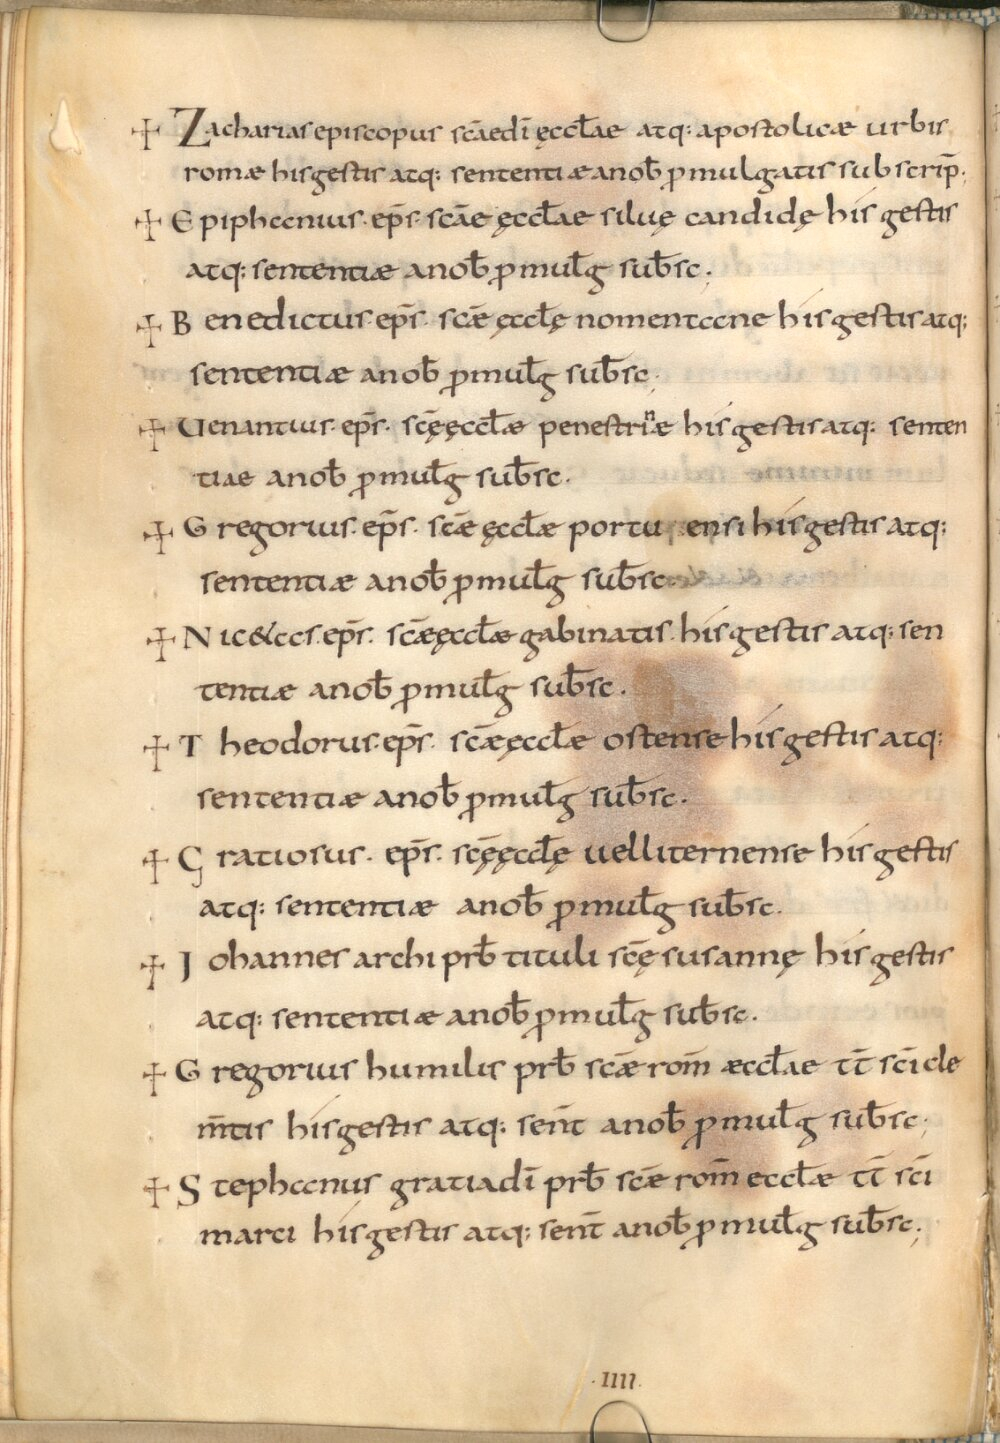 ✠ Zacharias episcopus scāe dī ęccłae atq: apostolicæ urbis
romæ his gestis atq: sententiæ a nob̄ promulgatis subscrip̄.
✠ Epiphanius · ep̄s · scāe ęccłae siluę candidę his gestis
atq: sententiæ a nob̄ promulḡ sub̄sc;
✠ Benedictus · ep̄s · scǣ ęccłę nomentane his gestis atq:
sententiæ a nob̄ promulḡ sub̄sc;
✠ Uenantius · ep̄s · scę̄ ęccłæ penestrine his gestis atq: senten
tiae a nob̄ promulḡ sub̄sc.
✠ Gregorius · ep̄s · scǣ ęccłæ portuensi his gestis atq:
sententiæ a nob̄ promulḡ sub̄sc
✠ Nic&as · ep̄s · scǣ ęccłæ gabinatis his gestis atq: sen
tentiæ a nob̄ promulḡ sub̄sc.
✠ Theodorus · ep̄s · scǣ ęccłæ ostense his gestis atq:
sententiæ a nob̄ promulḡ sub̄sc.
✠ Gratiosus · ep̄s · scę̄ ęccłę uelliternense his gestis
atq: sententiæ a nob̄ promulḡ sub̄sc.
✠ Iohannes archi prb̄ tituli scę̄ susannę his gestis
atq: sententiæ a nob̄ promulḡ sub̄sc.
✠ Gregorius humilis prb̄ scǣ rom̄ æccłae tt̄ scī cle
m̄tis his gestis atq: sent̄ a nob̄ promulḡ sub̄sc;
✠ Stephanus gratia dī prb̄ scǣ rom̄ eccłæ tt̄ scī
marci his gestis atq: sent̄ a nob̄ promulḡ sub̄sc;
·IIII·